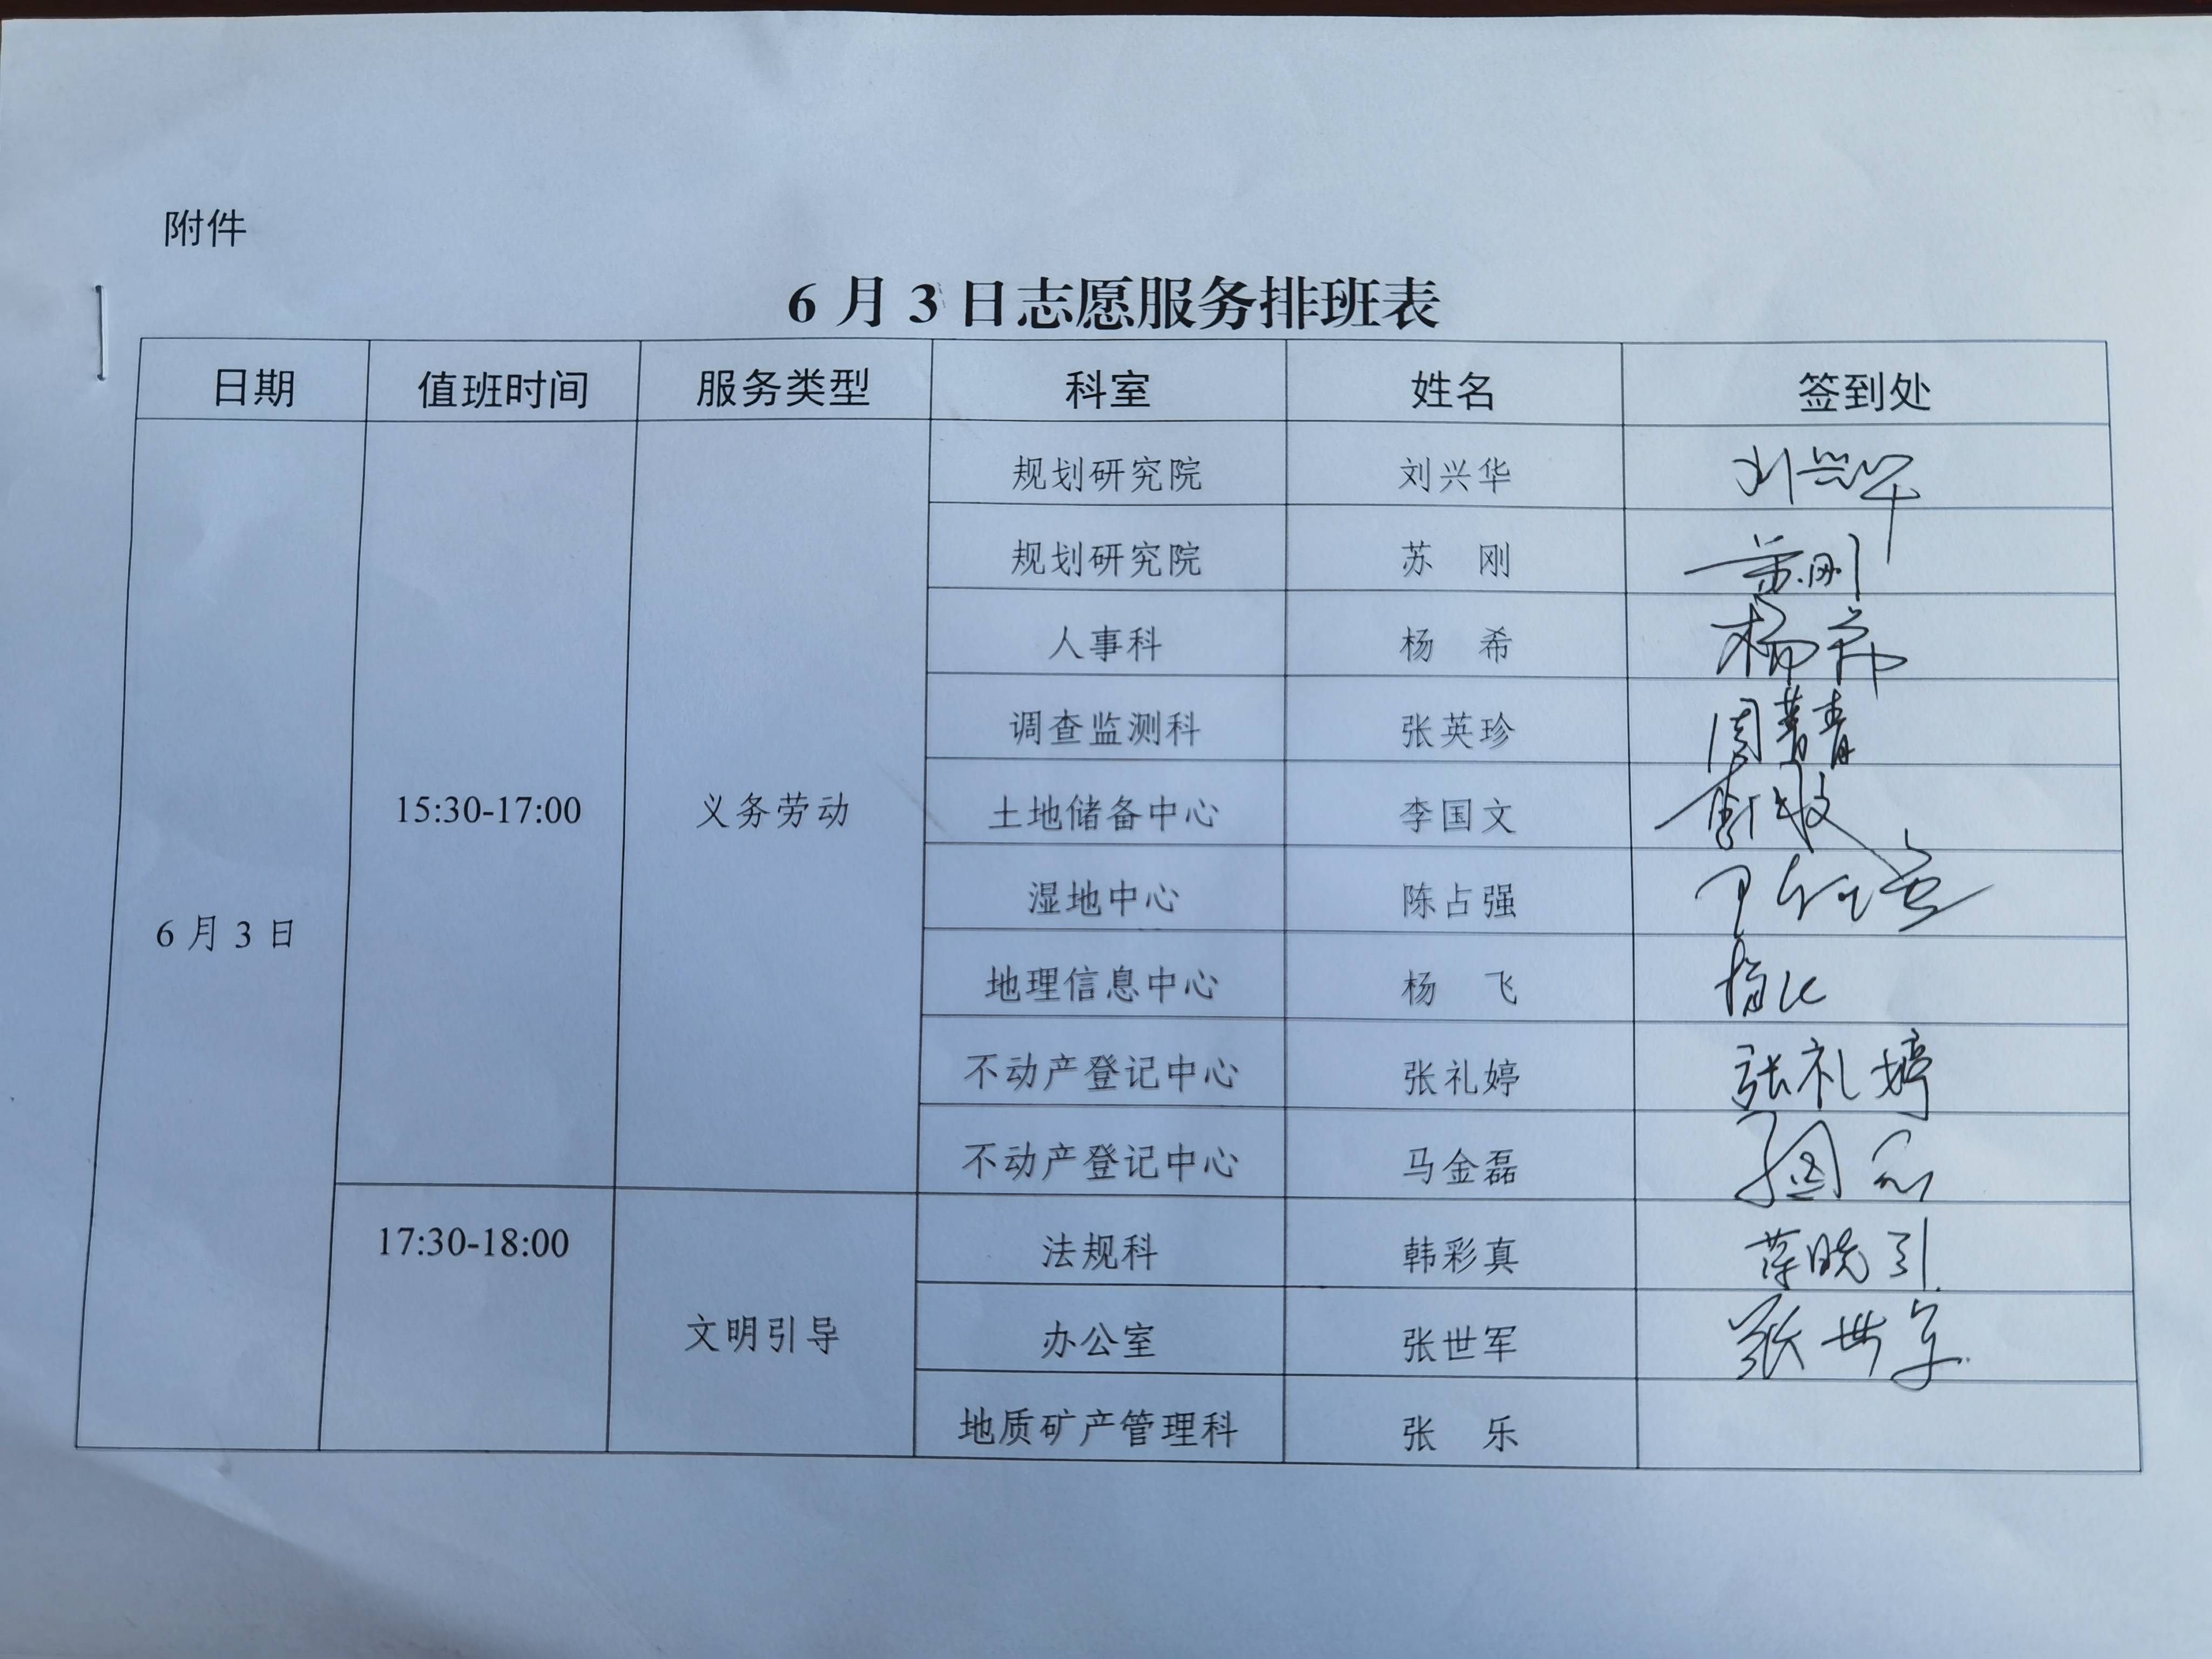 附件
6月3日志愿服务排班表
日期 值班时间 服务类型 科室 姓名 签到处
6月3日 15:30-17:00 义务劳动 规划研究院 刘兴华 刘兴华
规划研究院 苏 刚 苏刚
人事科 杨 希 杨希
调查监测科 张英珍
土地储备中心 李国文
湿地中心 陈占强
地理信息中心 杨 飞
不动产登记中心 张礼婷 张礼婷
不动产登记中心 马金磊
17:30-18:00 文明引导 法规科 韩彩真
办公室 张世军 张世军
地质矿产管理科 张 乐